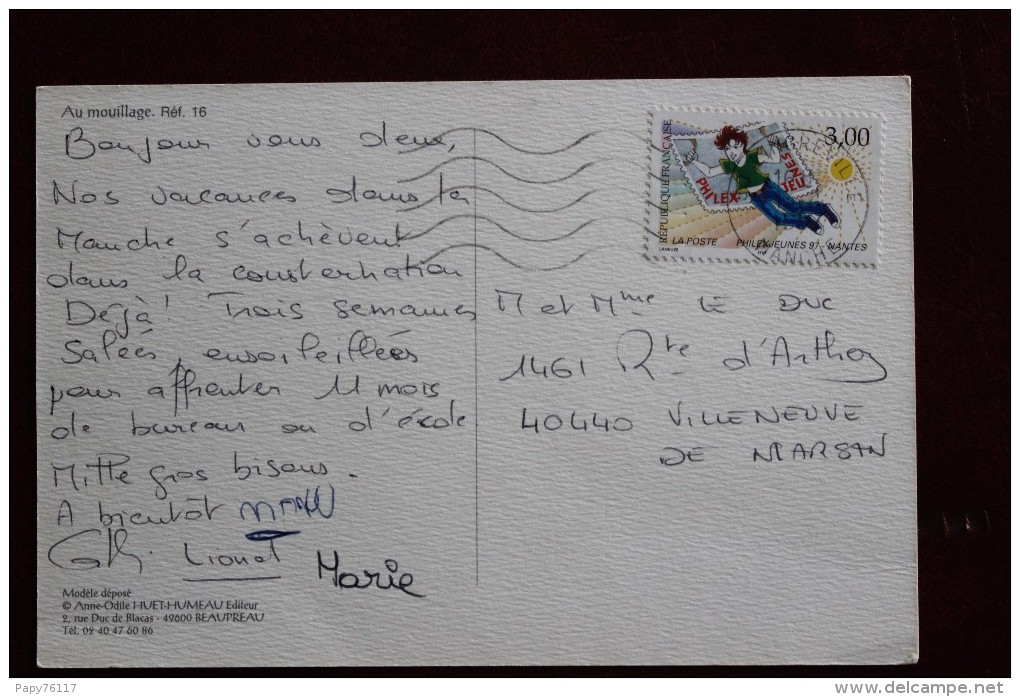 Au mouillage. Réf. 16
Bonjour vous deux,
Nos vacances dans la
Manche s'achèvent
dans la consternation
Déjà! Trois semaines
salées, ensoleillées
pour affronter 11 mois
de bureau ou d'école
Mille gros bisous.
A bientôt MANU
Cathy Lionel Marie
Modèle déposé
© Anne-Odile HUET-HUMEAU Editeur
2, rue Duc de Blacas - 49600 BEAUPREAU
Tél. 02 40 47 60 86
RÉPUBLIQUE FRANÇAISE
3,00
PHILEX
JEUNES
LA POSTE PHILEXJEUNES 97 - NANTES
MANCHE
M et Mme LE DUC
1461 Rte d'Arthez
40440 VILLENEUVE
DE MARSAN
Papy76117
delcampe.net